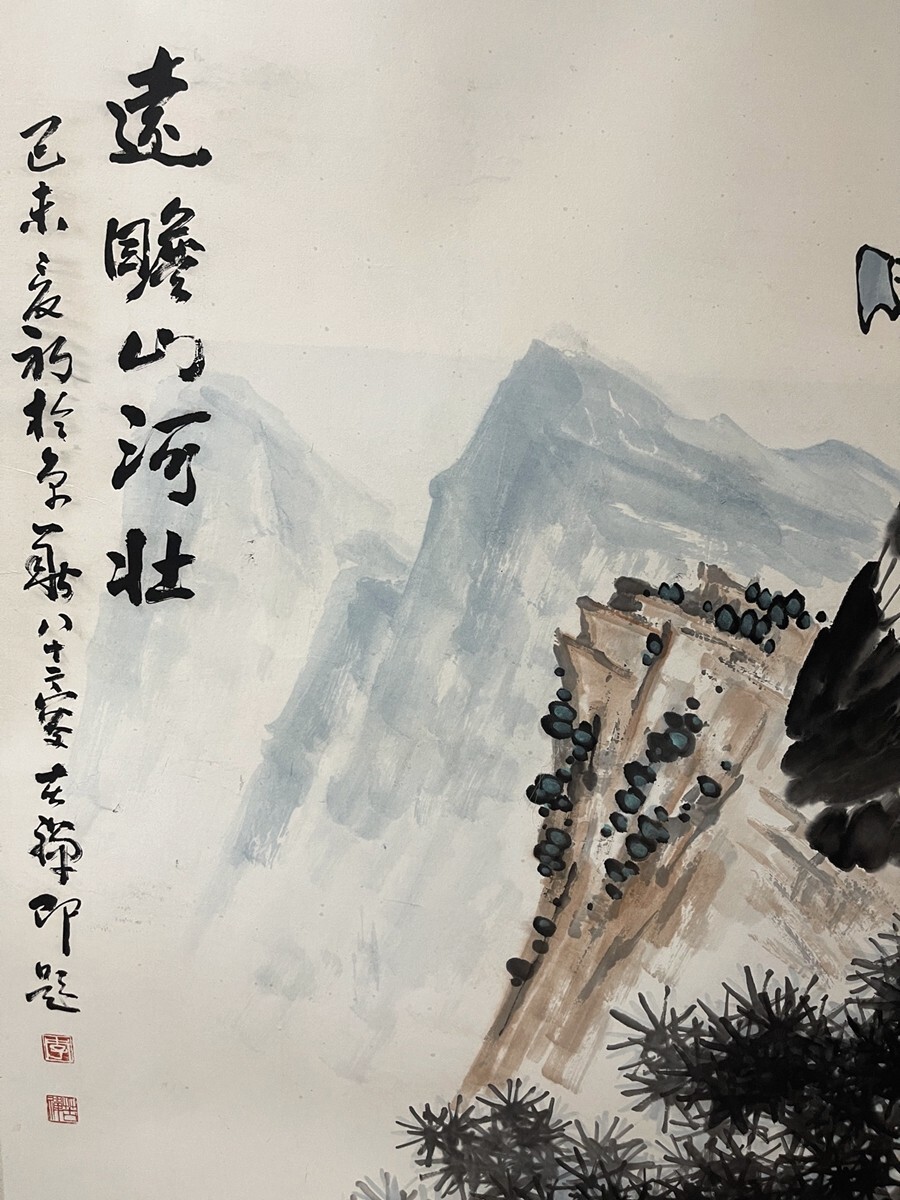 遠瞻山河壯
己未夏初於京華八十二叟苦禪即題
李
苦禪